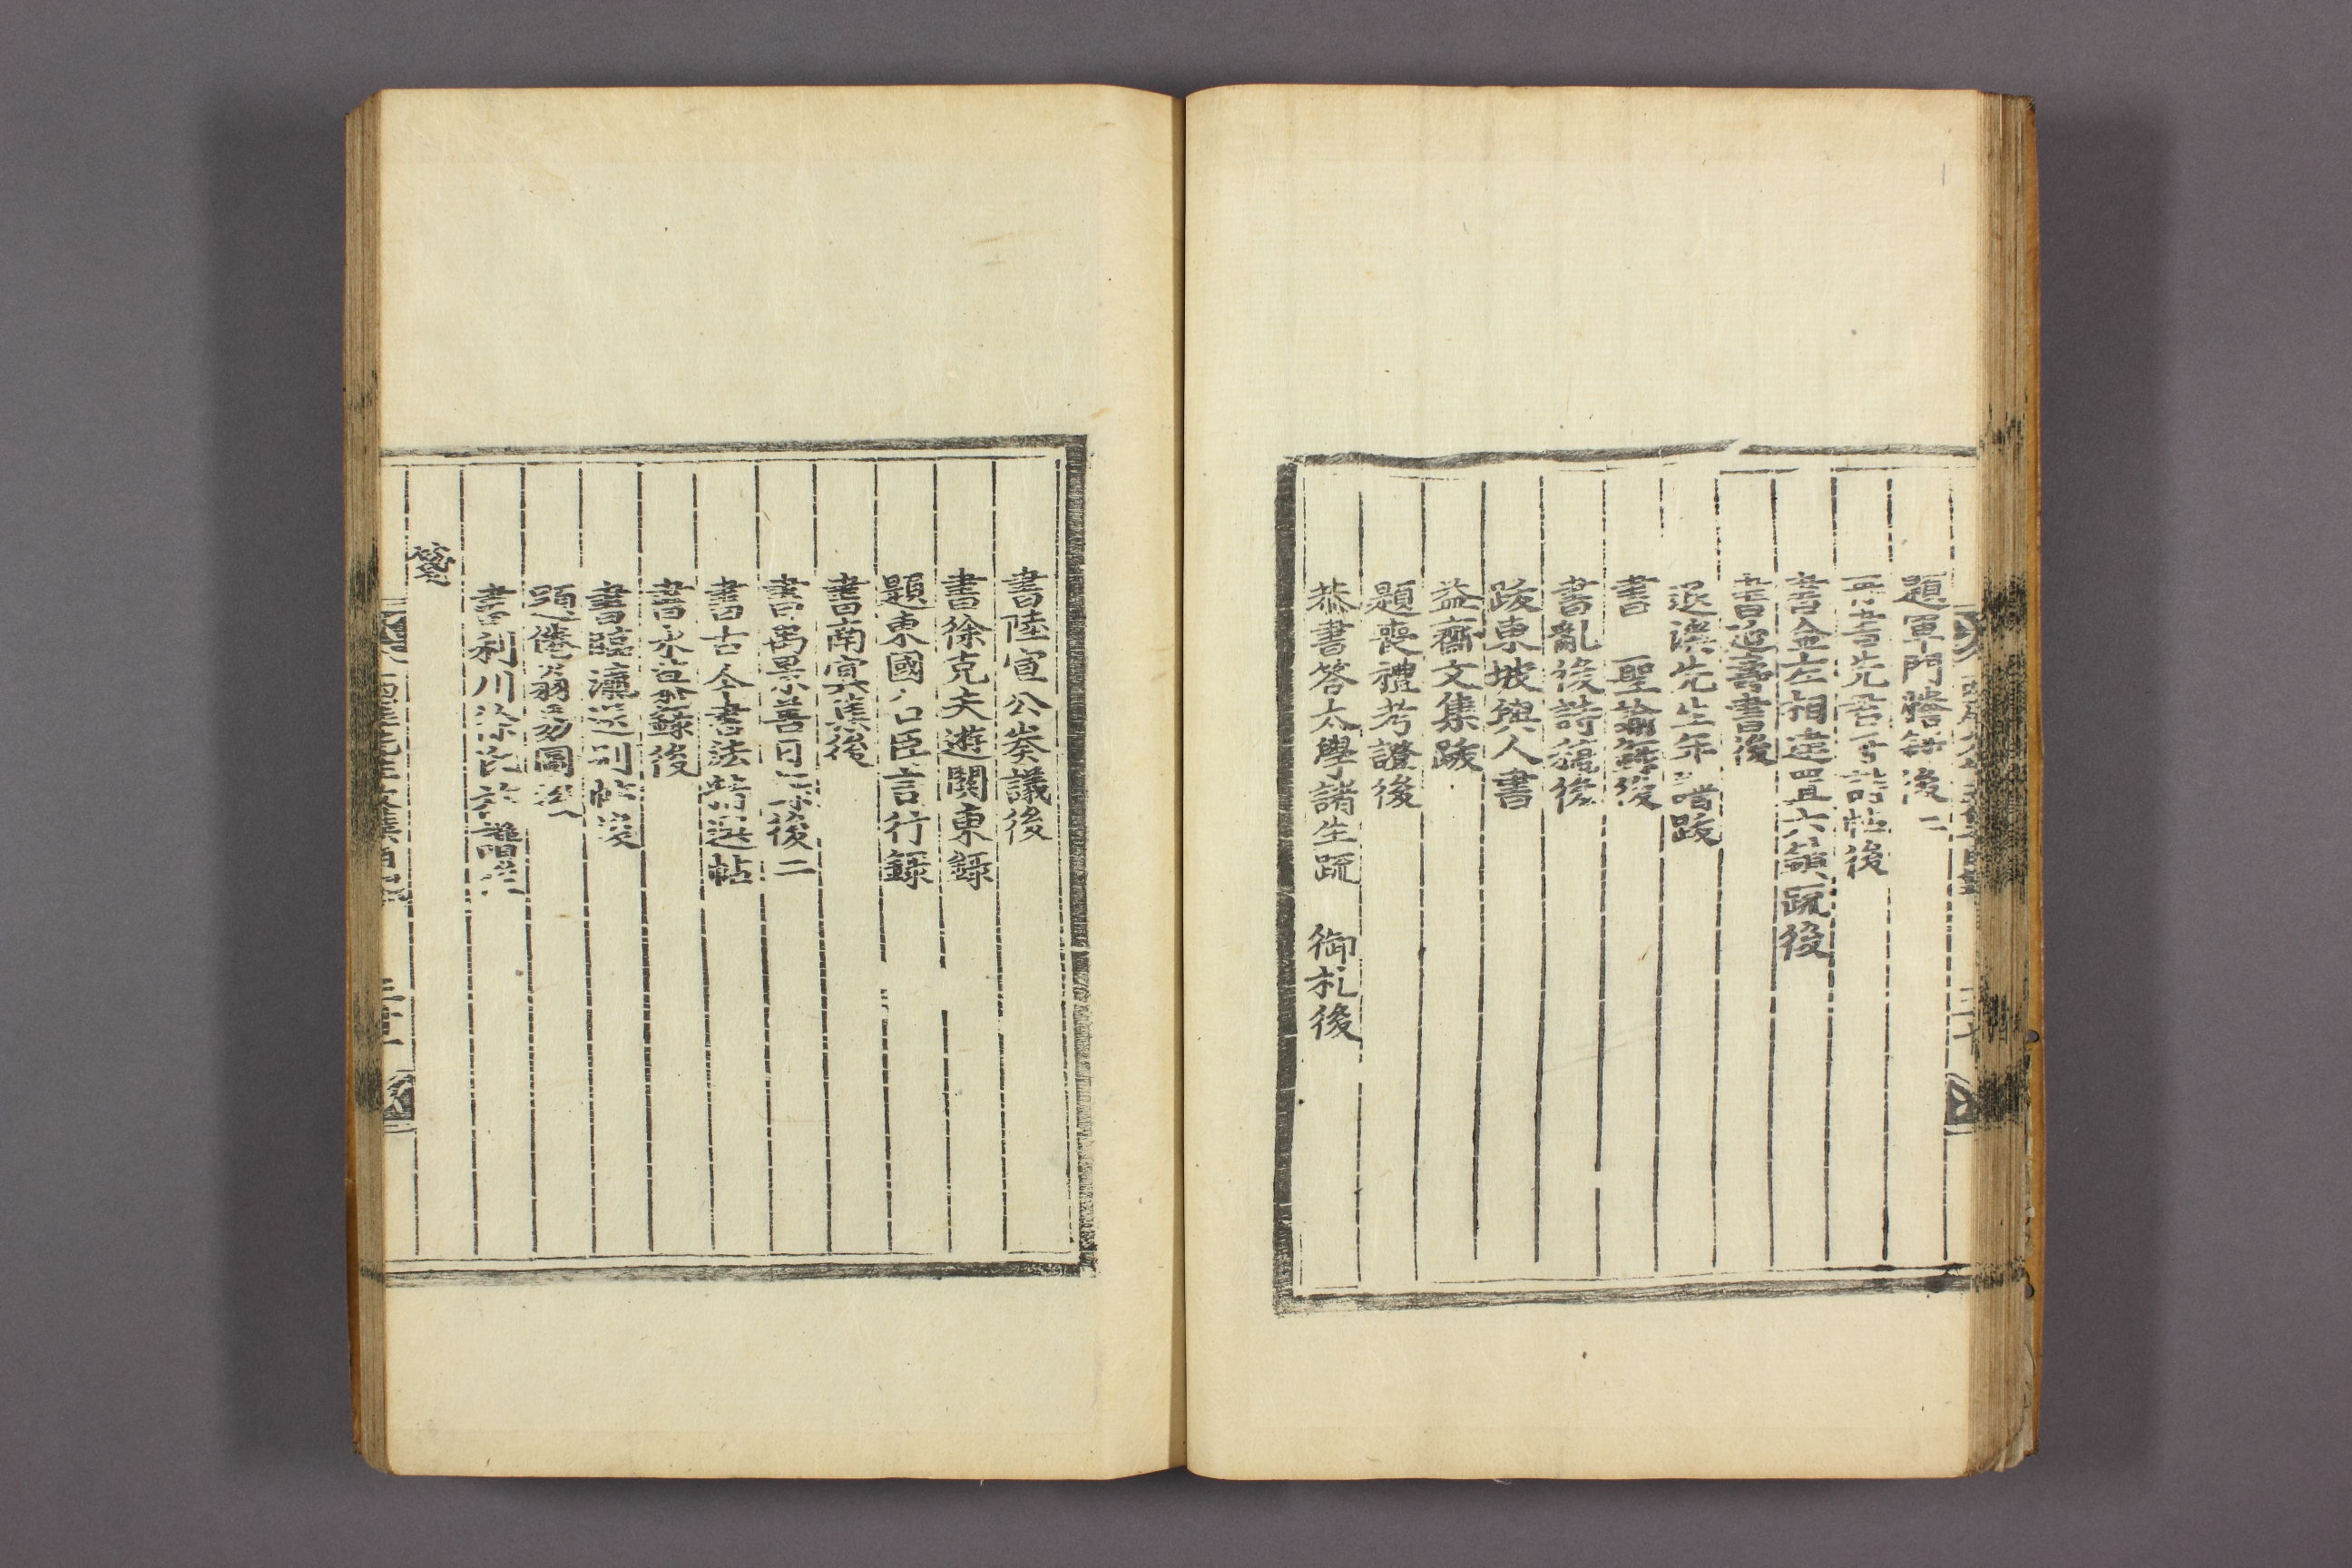 題軍門謄錄後二
再書先君手誥帖後
書金左相達置六鎭疏後
書延壽書後
退溪先生年譜跋
書 聖諭舞後
書亂後詩稿後
跋東坡與人書
益齋文集跋
題喪禮考證後
恭書答太學諸生疏 御札後
書陸宣公奏議後
書徐克夫遊關東錄
題東國名臣言行錄
書南冥集後
書禹景善日錄後二
書古今書法
書永慕錄後
書臨瀛送別帖後
題倦翁
書利川徐氏族譜
箋